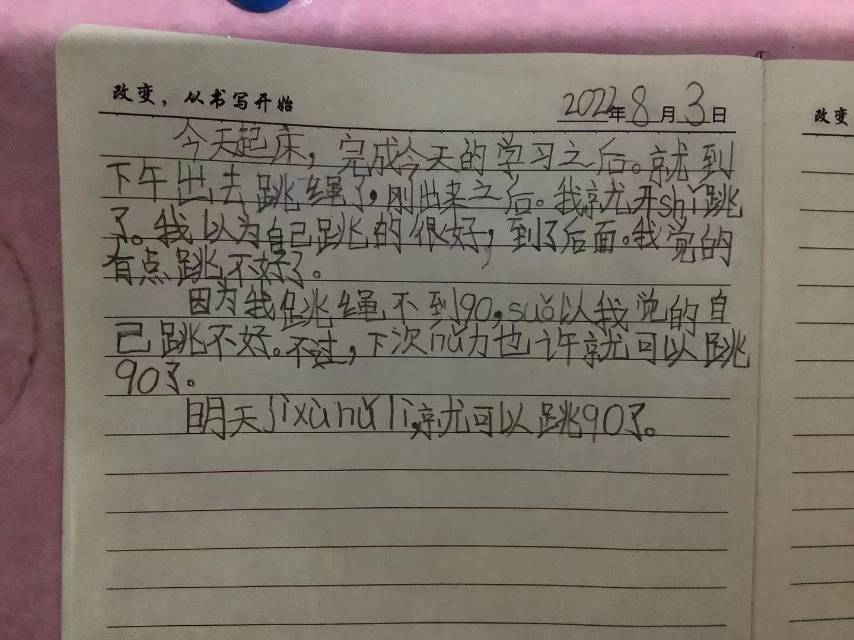 改变，从书写开始
2022年8月3日
改变
今天起床，完成今天的学习之后。就到
下午出去跳绳了，刚出来之后。我就开shǐ跳
了。我以为自己跳的很好，到了后面。我觉的
有点跳不好了。
因为我跳绳不到190，suǒ以我觉的自
己跳不好。不过，下次nǔ力也许就可以跳
90了。
明天jìxùnǔlì，就可以跳90了。